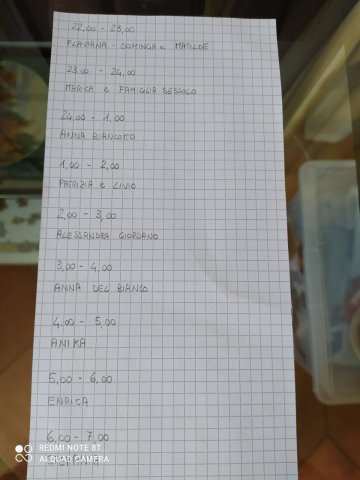 22,00 - 23,00
FLAVIANA - DOMINGA e MATILDE
23,00 - 24,00
MARICA e FAMIGLIA SESSOLO
24,00 - 1,00
ANNA BIANCOTTO
1,00 - 2,00
PATRIZIA e LIVIO
2,00 - 3,00
ALESSANDRA GIORDANO
3,00 - 4,00
ANNA DEL BIANCO
4,00 - 5,00
ANIKA
5,00 - 6,00
ENRICA
6,00 - 7,00
REDMI NOTE 8T
AI QUAD CAMERA